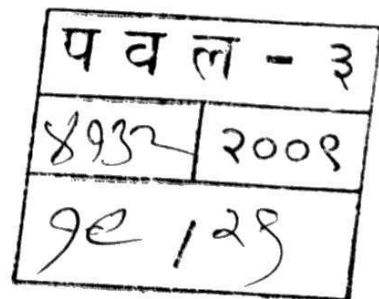 प व ल - ३
४१३२ २००९
१९ / २९